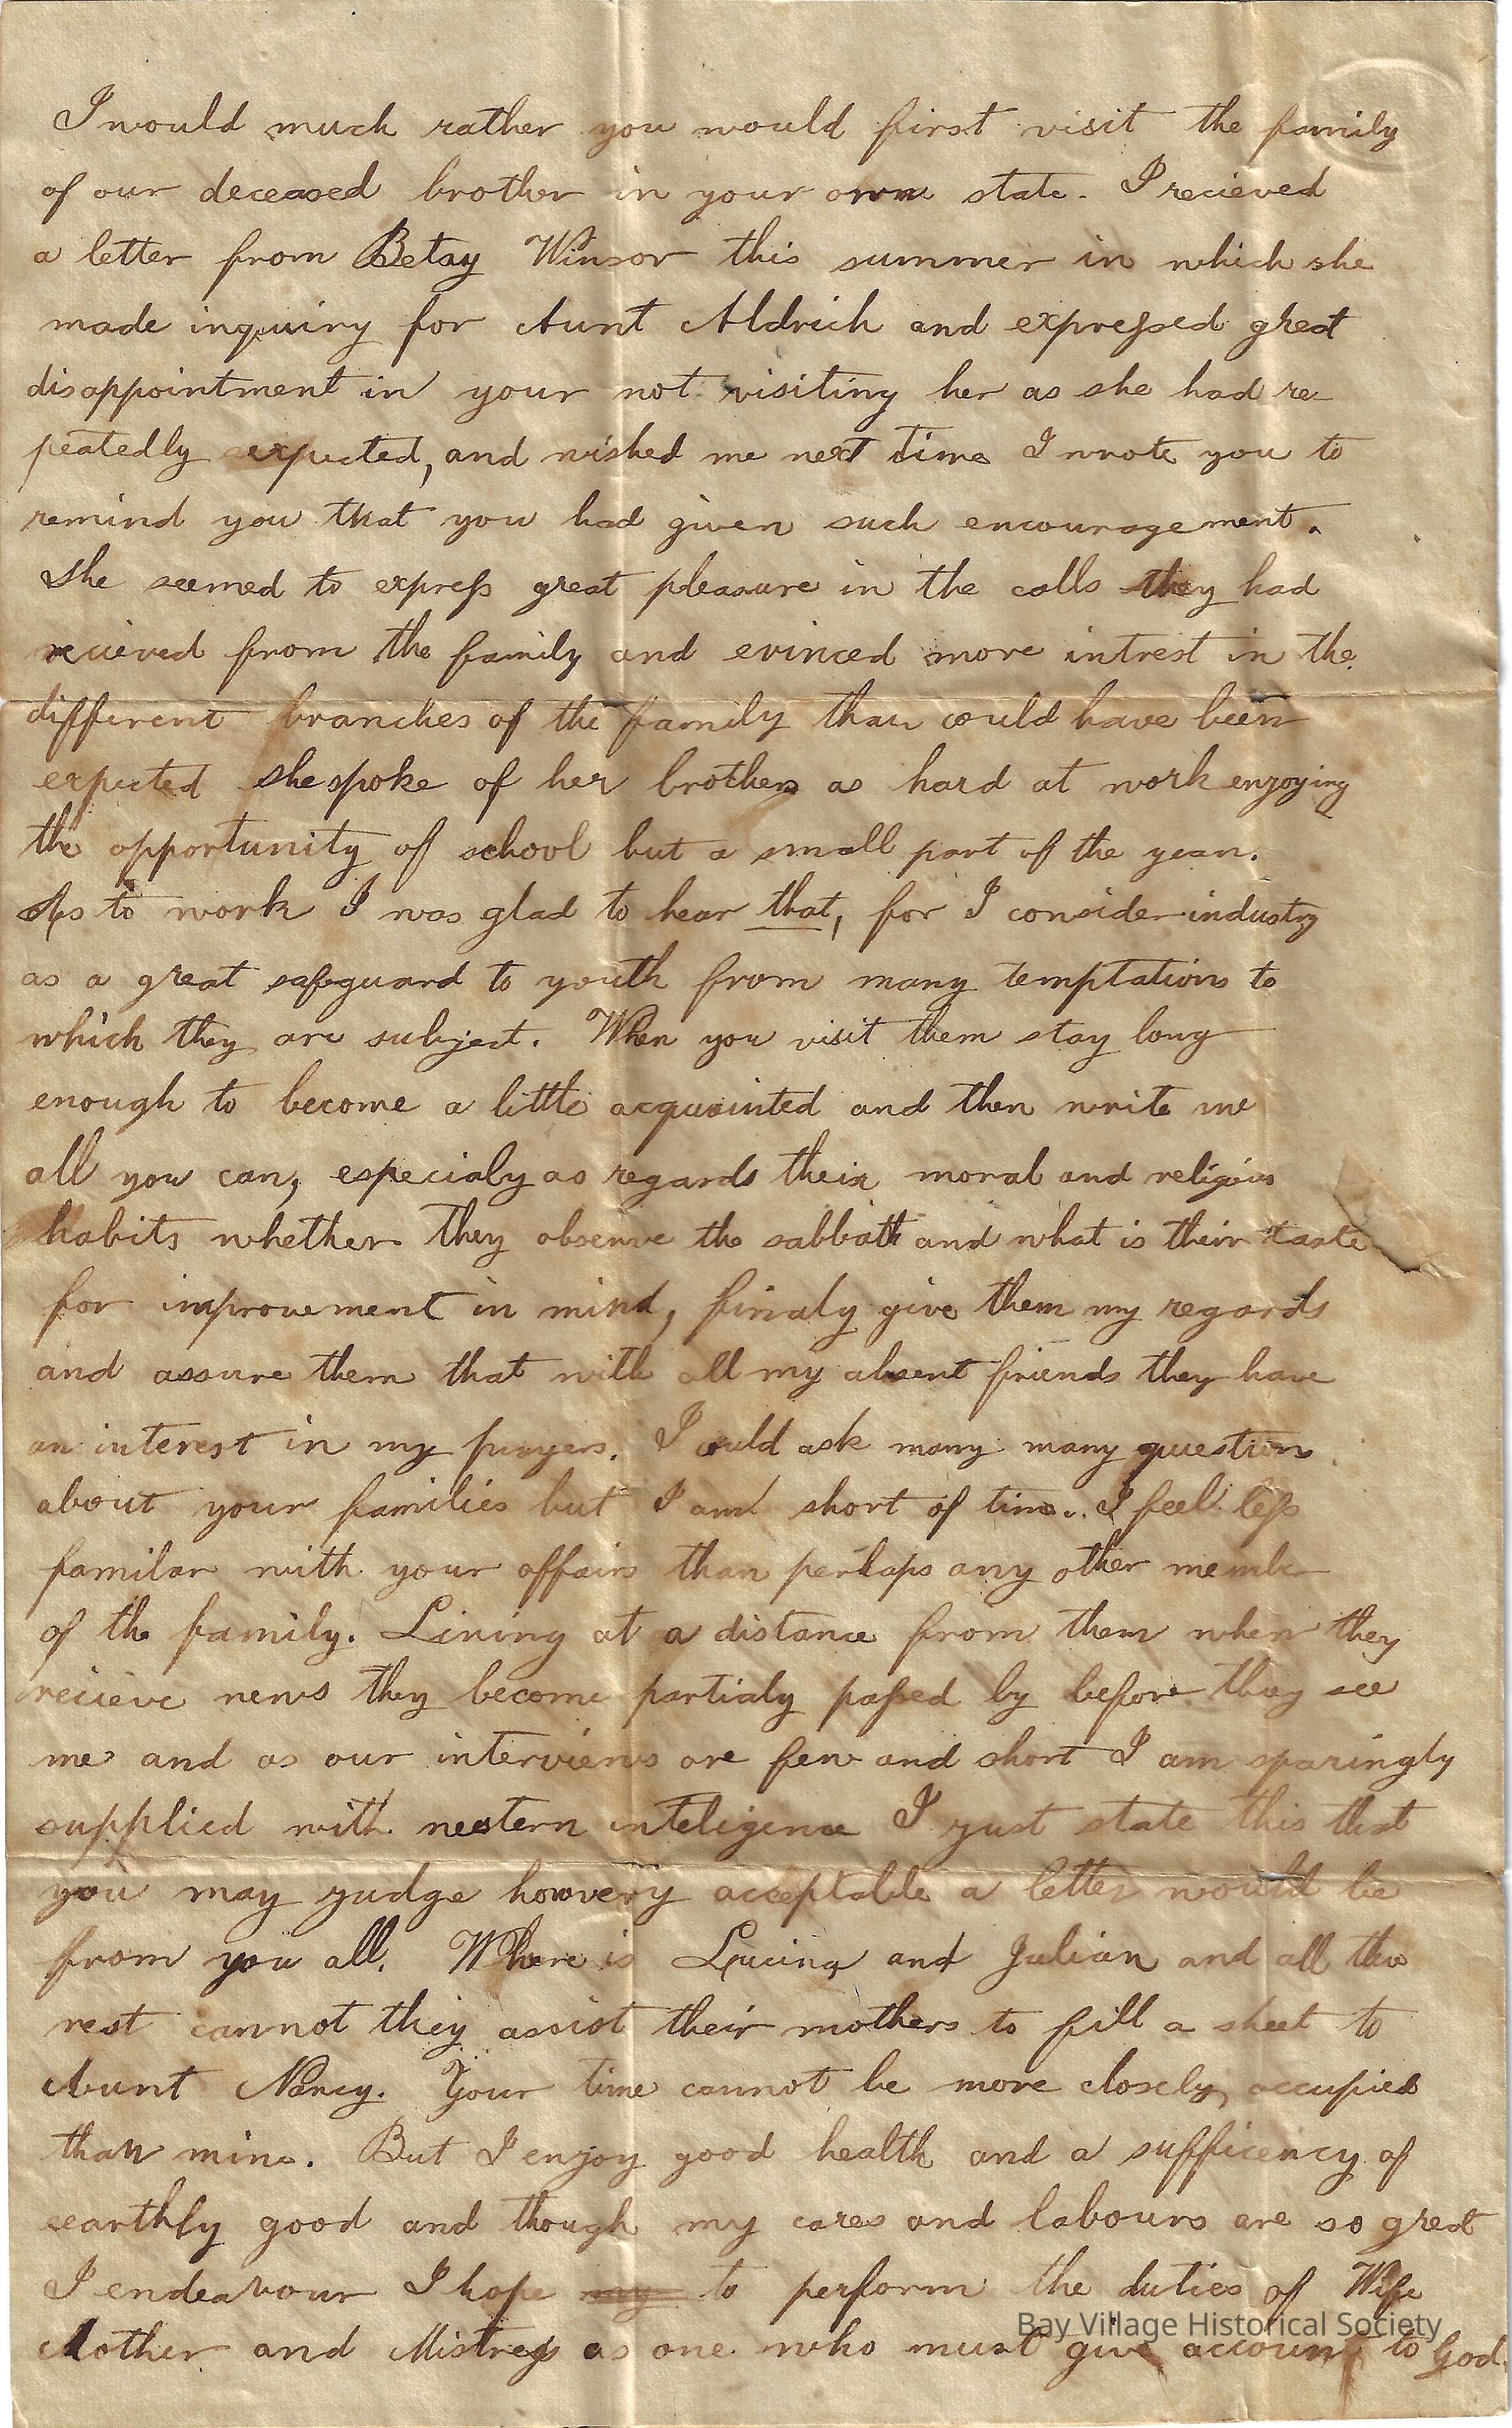 I would much rather you would first visit the family
of our deceased brother in your own state. I recieved
a letter from Betsy Winsor this summer in which she
made inquiry for Aunt Aldrich and expressed great
disappointment in your not visiting her as she had re-
peatedly expected, and wished me next time I wrote you to
remind you that you had given such encouragement.
She seemed to express great pleasure in the calls they had
recieved from the family and evinced more intrest in the
different branches of the family than could have been
expected she spoke of her brothers as hard at work enjoying
the opportunity of school but a small part of the year.
As to work I was glad to hear that, for I consider industry
as a great safeguard to youth from many temptations to
which they are subject. When you visit them stay long
enough to become a little acquainted and then write me
all you can, especialy as regards their moral and religious
habits whether they observe the sabbath and what is their taste
for improvement in mind, finaly give them my regards
and assure them that with all my absent friends they have
an interest in my prayers. I could ask many many questions
about your families but I am short of time. I feel less
familar with your affairs than perhaps any other member
of the family. Living at a distance from them when they
recieve news they become partialy passed by before they see
me and as our interviews are few and short I am sparingly
supplied with western inteligence I just state this that
you may judge how very acceptable a letter would be
from you all. Where is and Julian and all the
rest cannot they assist their mothers to fill a sheet to
Aunt Nancy. Your time cannot be more closely occupied
than mine. But I enjoy good health and a sufficency of
earthly good and though my cares and labours are so great
I endeavour I hope my to perform the duties of Wife
Mother and Mistress as one who must give account to God.
Bay Village Historical Society